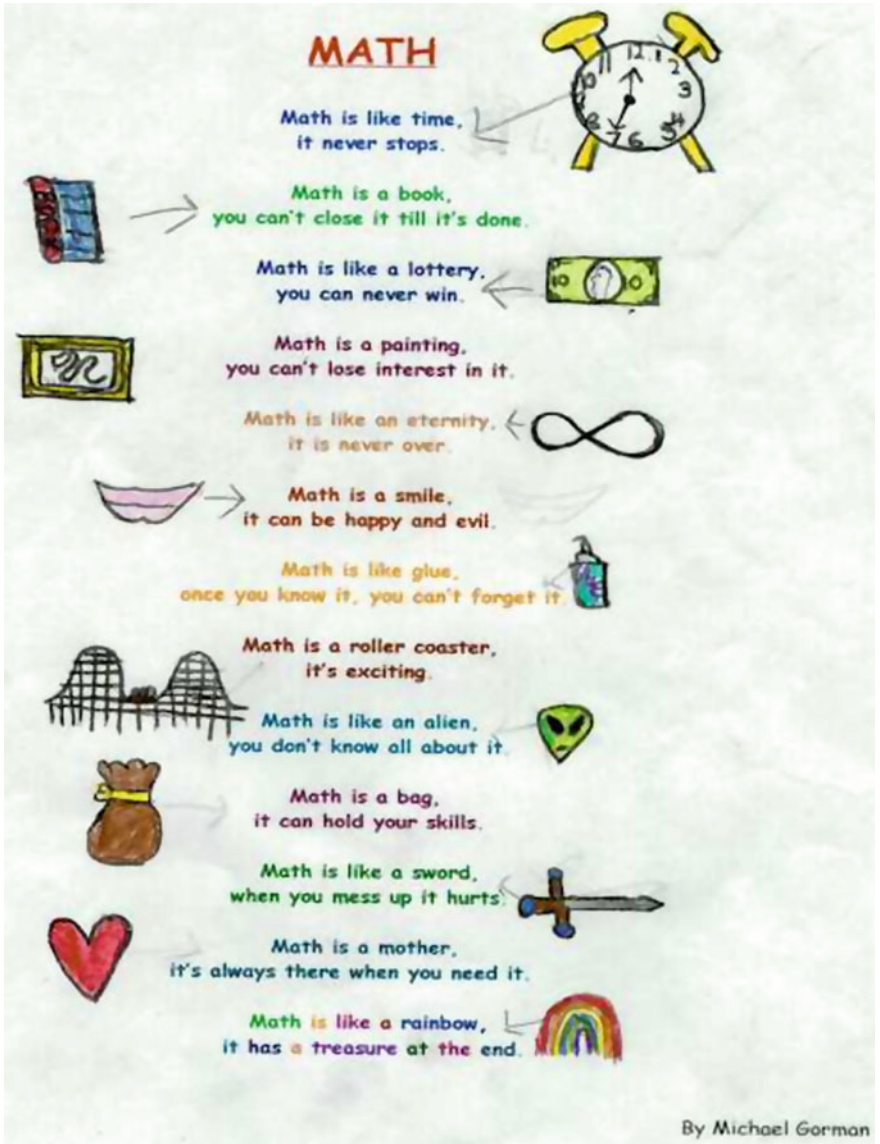 MATH
Math is like time,
it never stops.
Math is a book,
you can't close it till it's done.
Math is like a lottery,
you can never win.
Math is a painting,
you can't lose interest in it.
Math is like an eternity,
it is never over.
Math is a smile,
it can be happy and evil.
Math is like glue,
once you know it, you can't forget it.
Math is a roller coaster,
it's exciting.
Math is like an alien,
you don't know all about it.
Math is a bag,
it can hold your skills.
Math is like a sword,
when you mess up it hurts.
Math is a mother,
it's always there when you need it.
Math is like a rainbow,
it has a treasure at the end.
By Michael Gorman